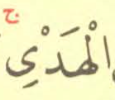 ج
الْهَدْيِ